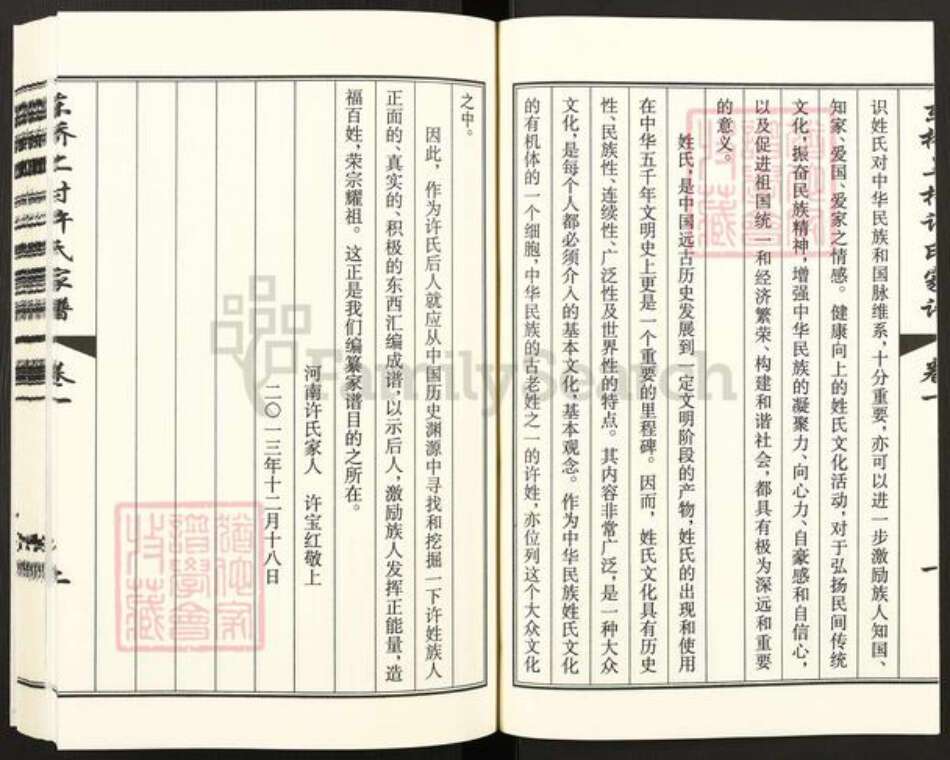 识姓氏对中华民族和国脉维系,十分重要,亦可以进一步激励族人知国、
知家、爱国、爱家之情感。健康向上的姓氏文化活动,对于弘扬民间传统
文化,振奋民族精神,增强中华民族的凝聚力、向心力、自豪感和自信心,
以及促进祖国统一和经济繁荣、构建和谐社会,都具有极为深远和重要
的意义。
姓氏,是中国远古历史发展到一定文明阶段的产物,姓氏的出现和使用
在中华五千年文明史上更是一个重要的里程碑。因而,姓氏文化具有历史
性、民族性、连续性、广泛性及世界性的特点。其内容非常广泛,是一种大众
文化,是每个人都必须介入的基本文化,基本观念。作为中华民族姓氏文化
的有机体的一个细胞,中华民族的古老姓之一的许姓,亦位列这个大众文化
之中。
因此,作为许氏后人就应从中国历史渊源中寻找和挖掘一下许姓族人
正面的、真实的、积极的东西汇编成谱,以示后人,激励族人发挥正能量,造
福百姓,荣宗耀祖。这正是我们编纂家谱目的之所在。
河南许氏家人 许宝红敬上
二〇一三年十二月十八日
许氏家谱
卷一
FamilySearch